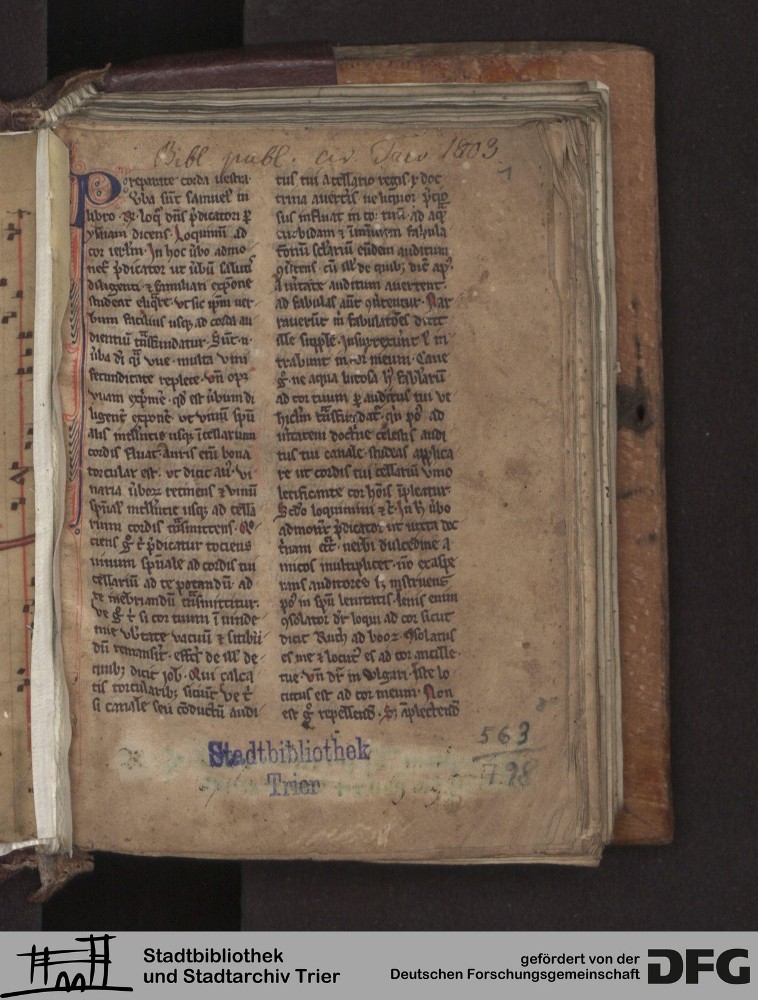 Bibl publ. civ Trev 1803.
1
Preparate corda uestra
Vba sūt samuel' in
libro. & loqͥ dn̄s p̄dicatori ꝑ
ysaiam dicens. Loquimī ad
cor ierl'm. In hoc ūbo admo
net p̄dicator ut ūbū salutis
diligenti ⁊ familiari exp̄one
studeat eliq̄re. ut sic ip̄m uer
bum facilius usq; ad corda au
dientiū tn̄sfundatur. Sūt .n.
ūba di q̄ uue multa uini
fecunditate replete. vn̄ opꝫ
uuam exp̄me. qd̄ est ūbum di
ligent' expone. ut uinū spū
alis intell'ncie usq; ī cellarium
cordis fluat. Auris enī bona
torcular est. ut dicit au'. vi
naria ūboꝝ retinens ⁊ uinū
sp̄uale intell'ncie usq; ad cella
rium cordis tn̄smittens. Qo
ciens g̊ t' p̄dicatur tociens
uinum sp̄uale ad cordis tui
cellariū ad te potandū. ad
te inebriandū tn̄smittitur.
Ve g̊ t' si cor tuum ī uinde
mie ubertate vacuū ⁊ sitibū
dū remansit. effc̄t' de ill' de
quibꝫ dicit iob. Qui calca
tis torcularibꝫ sitiūt. ve t'
si canale seu cōductū audi
tus tui a cellario regis ꝑ doc
trina auertis. ne liquor p̄cio
sus influat in cor tuū. ad aq̄s
turbidam ⁊ inmundam fabula
torum sclarium eūdem auditum
ꝯūtens. cū ill' de quibꝫ dic̄ ap'.
A ūitate auditum auertent.
ad fabulas aūt ꝯūtentur. Nar
rauerūt m̄ fabulatōes dicit
ille
trahunt in cor meum. Caue
g̊ ne aqua lutosa
ad cor tuum ꝑ auditus tui ve
hiclm tn̄sfundat'. qn̄ po' ad
ūitatem doctne celestis audi
tus tui canale studeas applica
re ut cordis tui cellariū vino
letificante cor hoīs īpleatur.
Scd̄o loquimini ⁊c. In h' ūbo
admonet' p̄dicator ut iuxta doc
t'nam eccī. uerbi dulcedine a
micos multiplicet. nō exaspe
rans auditores sꝫ instruens
po' in spū lenitatis. lenis enim
ꝯsolator dr̄ loqui ad cor sicut
dicit Ruth ad booz. Ꝯsolatus
es me ⁊ locut' es ad cor ancille
tue. Vn̄ dr̄ in vlgari. Iste lo
cutus est ad cor meum. Non
est g̊ repellend'. sꝫ āplectend'
Stadtbibliothek
Trier
563
798
Stadtbibliothek
und Stadtarchiv Trier
gefördert von der
Deutschen Forschungsgemeinschaft
DFG